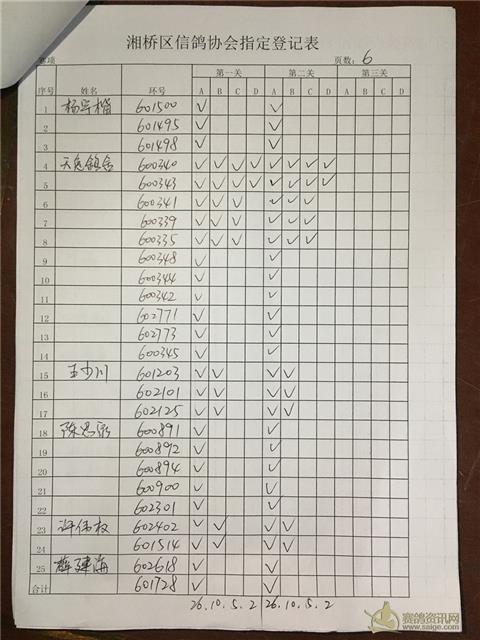 湘桥区信鸽协会指定登记表
赛项 页数: 6
序号 姓名 环号 第一关 第二关 第三关
A B C D A B C D A B C D
1 601500 ✓ ✓
2 601495 ✓ ✓
3 601498 ✓ ✓
4 600340 ✓ ✓ ✓ ✓ ✓ ✓ ✓ ✓
5 600343 ✓ ✓ ✓ ✓ ✓ ✓ ✓ ✓
6 600341 ✓ ✓ ✓ ✓ ✓ ✓
7 600339 ✓ ✓ ✓ ✓ ✓ ✓
8 600335 ✓ ✓ ✓ ✓ ✓ ✓
9 600348 ✓ ✓
10 600344 ✓ ✓
11 600342 ✓ ✓
12 602771 ✓ ✓
13 602773 ✓ ✓
14 600345 ✓ ✓
15 王少川 601203 ✓ ✓ ✓ ✓
16 602101 ✓ ✓ ✓ ✓
17 602125 ✓ ✓ ✓ ✓
18 600891 ✓ ✓
19 600892 ✓ ✓
20 600894 ✓ ✓
21 600900 ✓ ✓
22 602301 ✓ ✓
23 许伟权 602402 ✓ ✓ ✓ ✓
24 601514 ✓ ✓ ✓ ✓
25 薛建海 602618 ✓ ✓
合计 601728 ✓ ✓
26.10.5.2 26.10.5.2
赛鸽资讯网
www.saige.com